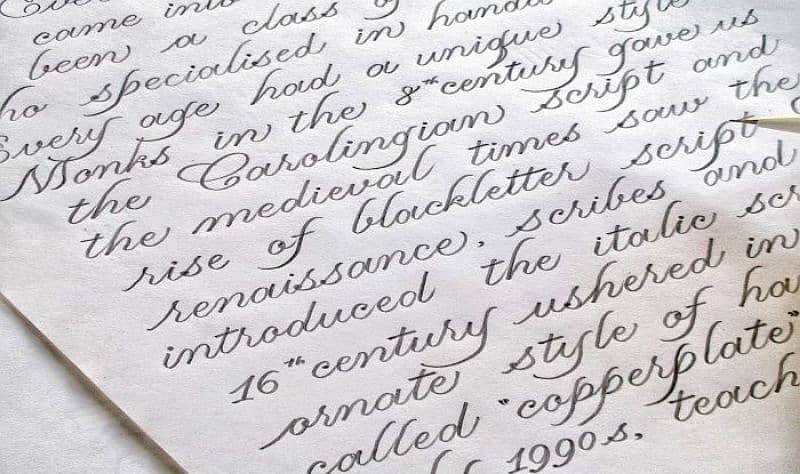 came into
been a class
specialised in
Every age had a unique style
Monks in the 8th century gave us
the Carolingian script and
the medieval times saw the
rise of blackletter script
renaissance, scribes and
introduced the italic
16th century ushered in
ornate style of
called "copperplate"
1990s, teach